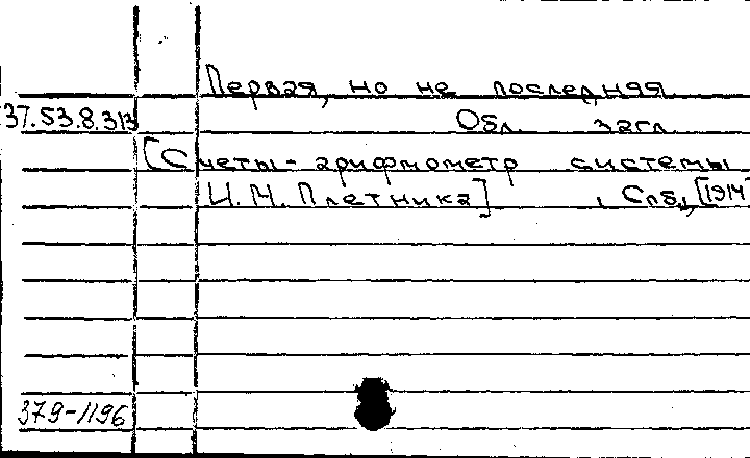 Первая, но не последняя
37.53.8.313
Обл. загл.
[Счеты-арифмометр системы
И.М. Плетника] , Спб., [1914]
379-1196